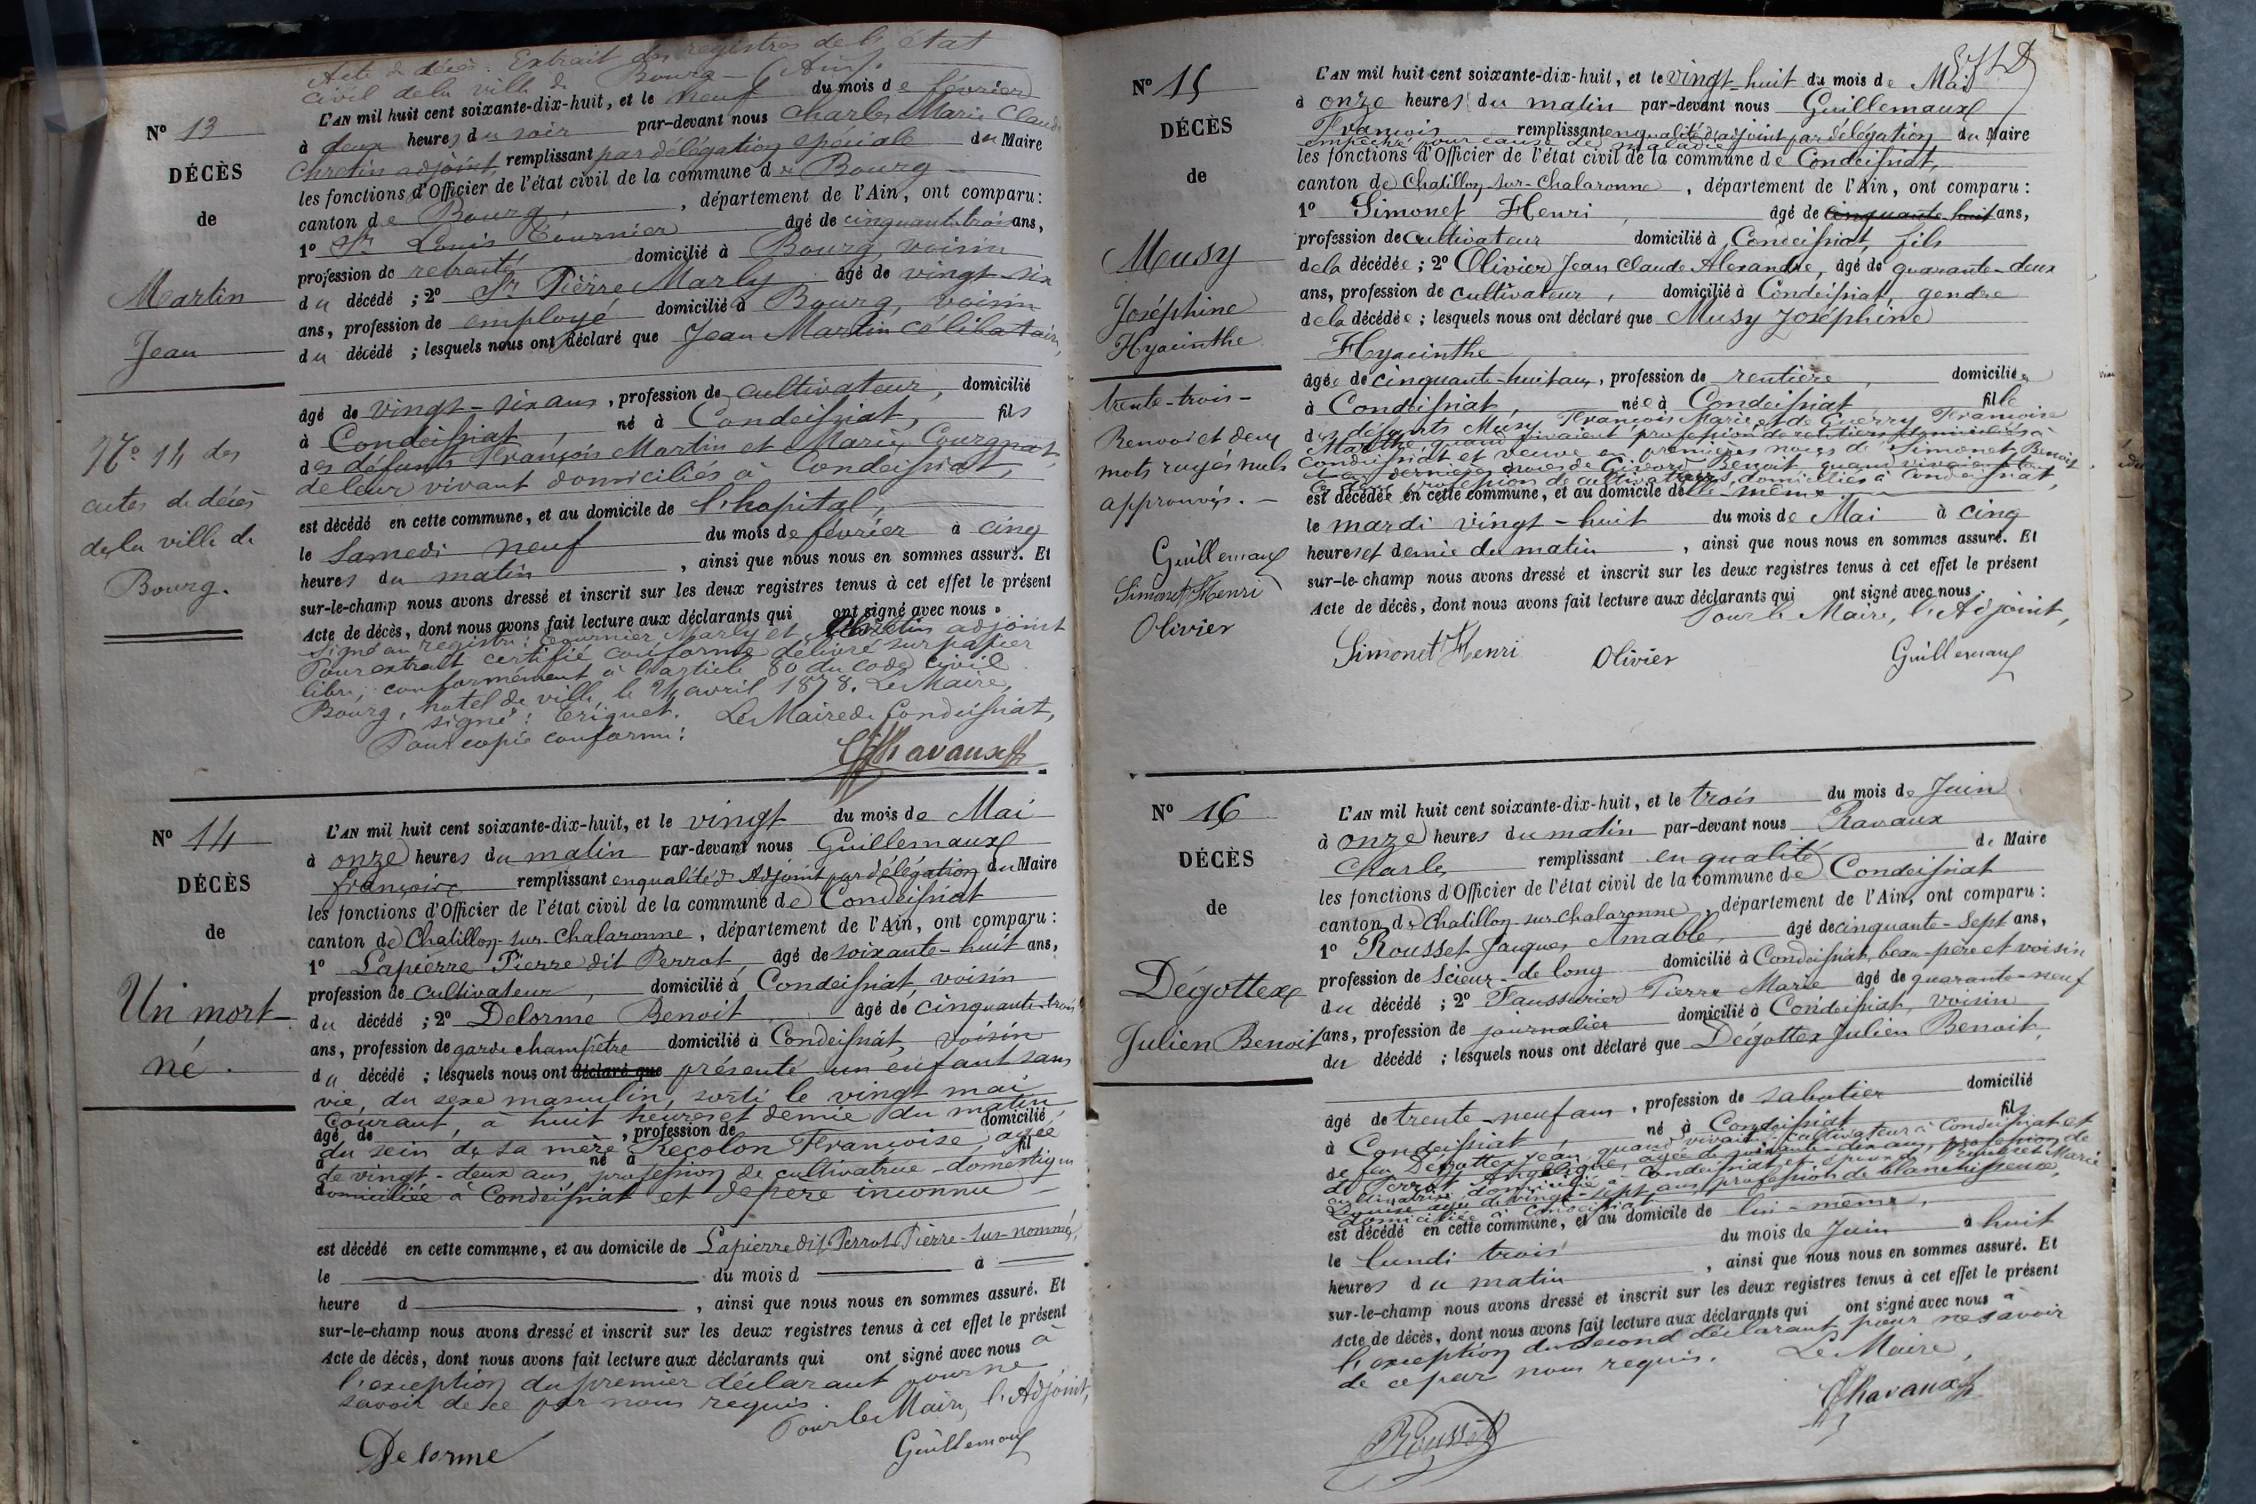 Acte de décès. Extrait des registres de l'état
civil de la ville de Bourg - (Ain).
N° 13
DÉCÈS
de
Martin
Jean
N° 14 des
actes de décès
de la ville de
Bourg.
L'AN mil huit cent soixante-dix-huit, et le neuf du mois de février
à deux heures du soir par-devant nous Charles Marie Claude
Chretin adjoint, remplissant par délégation spéciale du Maire
les fonctions d'Officier de l'état civil de la commune de Bourg
canton de Bourg, département de l'Ain, ont comparu:
1° Sr Louis Tournier âgé de cinquante trois ans,
profession de retraité domicilié à Bourg, voisin
du décédé ; 2° Sr Pierre Marly âgé de vingt-six
ans, profession de employé domicilié à Bourg, voisin
du décédé ; lesquels nous ont déclaré que Jean Martin célibataire,
âgé de vingt-six ans, profession de cultivateur, domicilié
à Condeissiat, né à Condeissiat, fils
des défunts François Martin et Marie Courgnat,
de leur vivant domiciliés à Condeissiat,
est décédé en cette commune, et au domicile de l'hopital,
le samedi neuf du mois de février à cinq
heures du matin, ainsi que nous nous en sommes assuré. Et
sur-le-champ nous avons dressé et inscrit sur les deux registres tenus à cet effet le présent
Acte de décès, dont nous avons fait lecture aux déclarants qui ont signé avec nous.
Signé au registre: Tournier Marly et Chretin adjoint
Pour extrait certifié conforme délivré sur papier
libre, conformément à l'article 80 du Code civil
Bourg, hotel de ville, le 24 avril 1878. Le Maire,
signé: Tiquet. Le Maire de Condeissiat,
Pour copie conforme:
Ch Ravaux
N° 14
DÉCÈS
de
Un mort-
né.
L'AN mil huit cent soixante-dix-huit, et le vingt du mois de Mai
à onze heures du matin par-devant nous Guillemaux
françois remplissant en qualité d'Adjoint par délégation du Maire
les fonctions d'Officier de l'état civil de la commune de Condeissiat
canton de Chatillon-sur-Chalaronne, département de l'Ain, ont comparu:
1° Lapierre Pierre dit Perrot, âgé de soixante-huit ans,
profession de cultivateur, domicilié à Condeissiat, voisin
du décédé ; 2° Delorme Benoit âgé de cinquante-trois
ans, profession de garde champêtre domicilié à Condeissiat, voisin
du décédé ; lesquels nous ont déclaré que présenté un enfant sans
vie, du sexe masculin, sorti le vingt mai
courant, à huit heures et demie du matin
âgé de , profession de domicilié
du sein de sa mère Recolon Françoise, agée
à né à fil
de vingt-deux ans, profession de cultivatrice-domestique
domiciliée à Condeissiat et de père inconnu
est décédé en cette commune, et au domicile de Lapierre dit Perrot Pierre-sus-nommé,
le du mois d à
heure d , ainsi que nous nous en sommes assuré. Et
sur-le-champ nous avons dressé et inscrit sur les deux registres tenus à cet effet le présent
Acte de décès, dont nous avons fait lecture aux déclarants qui ont signé avec nous à
l'exception du premier déclarant pour ne
savoir de ce par nous requis.
Pour le Maire, l'Adjoint,
Delorme
Guillemaux
N° 15
DÉCÈS
de
Musy
Joséphine
Hyacinthe
trente-trois-
Renvoi et deux
mots rayés nuls
approuvés.
Guillemaux
Simonet Henri
Olivier
L'AN mil huit cent soixante-dix-huit, et le vingt-huit du mois de Mai
à onze heures du matin par-devant nous Guillemaux
François remplissant en qualité d'adjoint par délégation du Maire
empêché pour cause de maladie
les fonctions d'Officier de l'état civil de la commune de Condeissiat,
canton de Chatillon-sur-Chalaronne, département de l'Ain, ont comparu:
1° Simonet Henri, âgé de cinquante-huit ans,
profession de cultivateur domicilié à Condeissiat, fils
de la décédée ; 2° Olivier Jean Claude Alexandre, âgé de quarante-deux
ans, profession de cultivateur, domicilié à Condeissiat, gendre
de la décédée ; lesquels nous ont déclaré que Musy Joséphine
Hyacinthe
âgée de cinquante-huit ans, profession de rentière, domiciliée
à Condeissiat, née à Condeissiat fille
des défunts Musy François Marie et de Guerry Françoise
Marthe, quand vivaient profession de rentiers domiciliés à
Condeissiat et veuve en premières noces de Simonet Benoit
et en dernières noces de Girord Benoit quand vivaient tous
les deux profession de cultivateurs, domiciliés à Condeissiat,
est décédée en cette commune, et au domicile d'elle même
le mardi vingt-huit du mois de Mai à cinq
heures et demie du matin, ainsi que nous nous en sommes assuré. Et
sur-le-champ nous avons dressé et inscrit sur les deux registres tenus à cet effet le présent
Acte de décès, dont nous avons fait lecture aux déclarants qui ont signé avec nous.
Pour le Maire, l'Adjoint,
Simonet Henri Olivier Guillemaux
N° 16
DÉCÈS
de
Dégottex
Julien Benoit
L'AN mil huit cent soixante-dix-huit, et le trois du mois de Juin
à onze heures du matin par-devant nous Ravaux
Charles remplissant en qualité de Maire
les fonctions d'Officier de l'état civil de la commune de Condeissiat
canton de Chatillon sur Chalaronne, département de l'Ain, ont comparu:
1° Rousset Jacques Amable, âgé de cinquante-sept ans,
profession de scieur-de long domicilié à Condeissiat, beau-père et voisin
du décédé ; 2° Faussurier Pierre Marie âgé de quarante-neuf
ans, profession de journalier domicilié à Condeissiat, voisin
du décédé ; lesquels nous ont déclaré que Dégottex Julien Benoit,
âgé de trente-neuf ans, profession de sabotier domicilié
à Condeissiat, né à Condeissiat fils
de feu Dégottex Jean, quand vivait cultivateur à Condeissiat et
de Perrot Angélique, agée de soixante-dix ans, profession de
cultivatrice domiciliée à Condeissiat et époux de Rousset Marie
Louise agée de vingt-sept ans, profession de blanchisseuse,
domiciliée à Condeissiat
est décédé en cette commune, et au domicile de lui-même,
le lundi trois du mois de Juin à huit
heures du matin, ainsi que nous nous en sommes assuré. Et
sur-le-champ nous avons dressé et inscrit sur les deux registres tenus à cet effet le présent
Acte de décès, dont nous avons fait lecture aux déclarants qui ont signé avec nous à
l'exception du second déclarant pour ne savoir
de ce par nous requis. Le Maire,
Ch Ravaux
Rousset